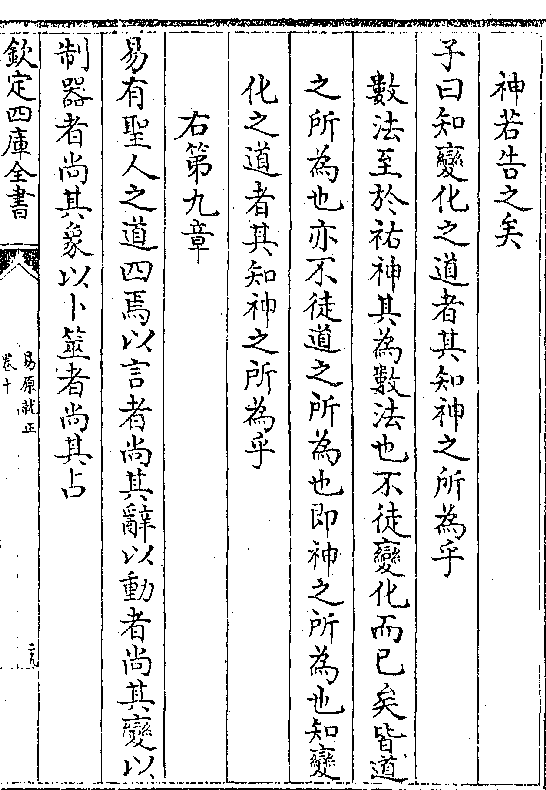 神若告之矣
子曰知變化之道者其知神之所為乎
數法至於祐神其為數法也不徒變化而已矣皆道
之所為也亦不徒道之所為也即神之所為也知變
化之道者其知神之所為乎
右第九章
易有聖人之道四焉以言者尚其辭以動者尚其變以
制器者尚其象以卜筮者尚其占
欽定四庫全書
易原就正
卷十